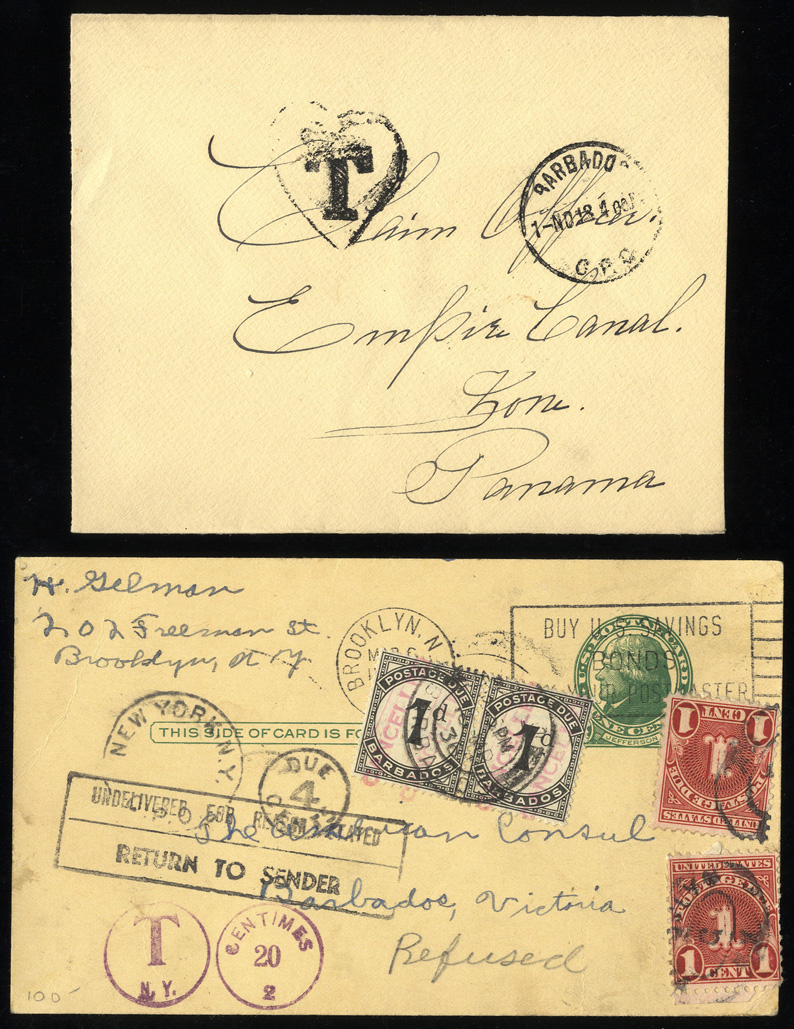 T
BARBADO
1-NO18 4 00P
G.P.O
Claim Officer.
Empire Canal.
Zone.
Panama
H. Gelman
202 Freeman St.
Brooklyn, N Y
BROOKLYN, N
BUY U.S. SAVINGS
BONDS
YOUR POSTMASTER
JEFFERSON
THIS SIDE OF CARD IS FO
POSTAGE DUE
1d
BARBADOS
POSTAGE DUE
1d
BARBADOS
1 CENT 1
POSTAGE DUE
UNITED STATES
NEW YORK, N.Y.
DUE
4
CENTS
UNDELIVERED FOR REASON STATED
RETURN TO SENDER
The American Consul
Barbados, Victoria
Refused
T
N.Y.
CENTIMES
20
2
UNITED STATES
POSTAGE DUE
1
1 CENT 1
100